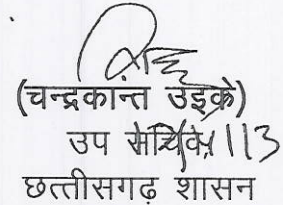 (चन्द्रकान्त उइके)
उप सचिव
छत्तीसगढ़ शासन